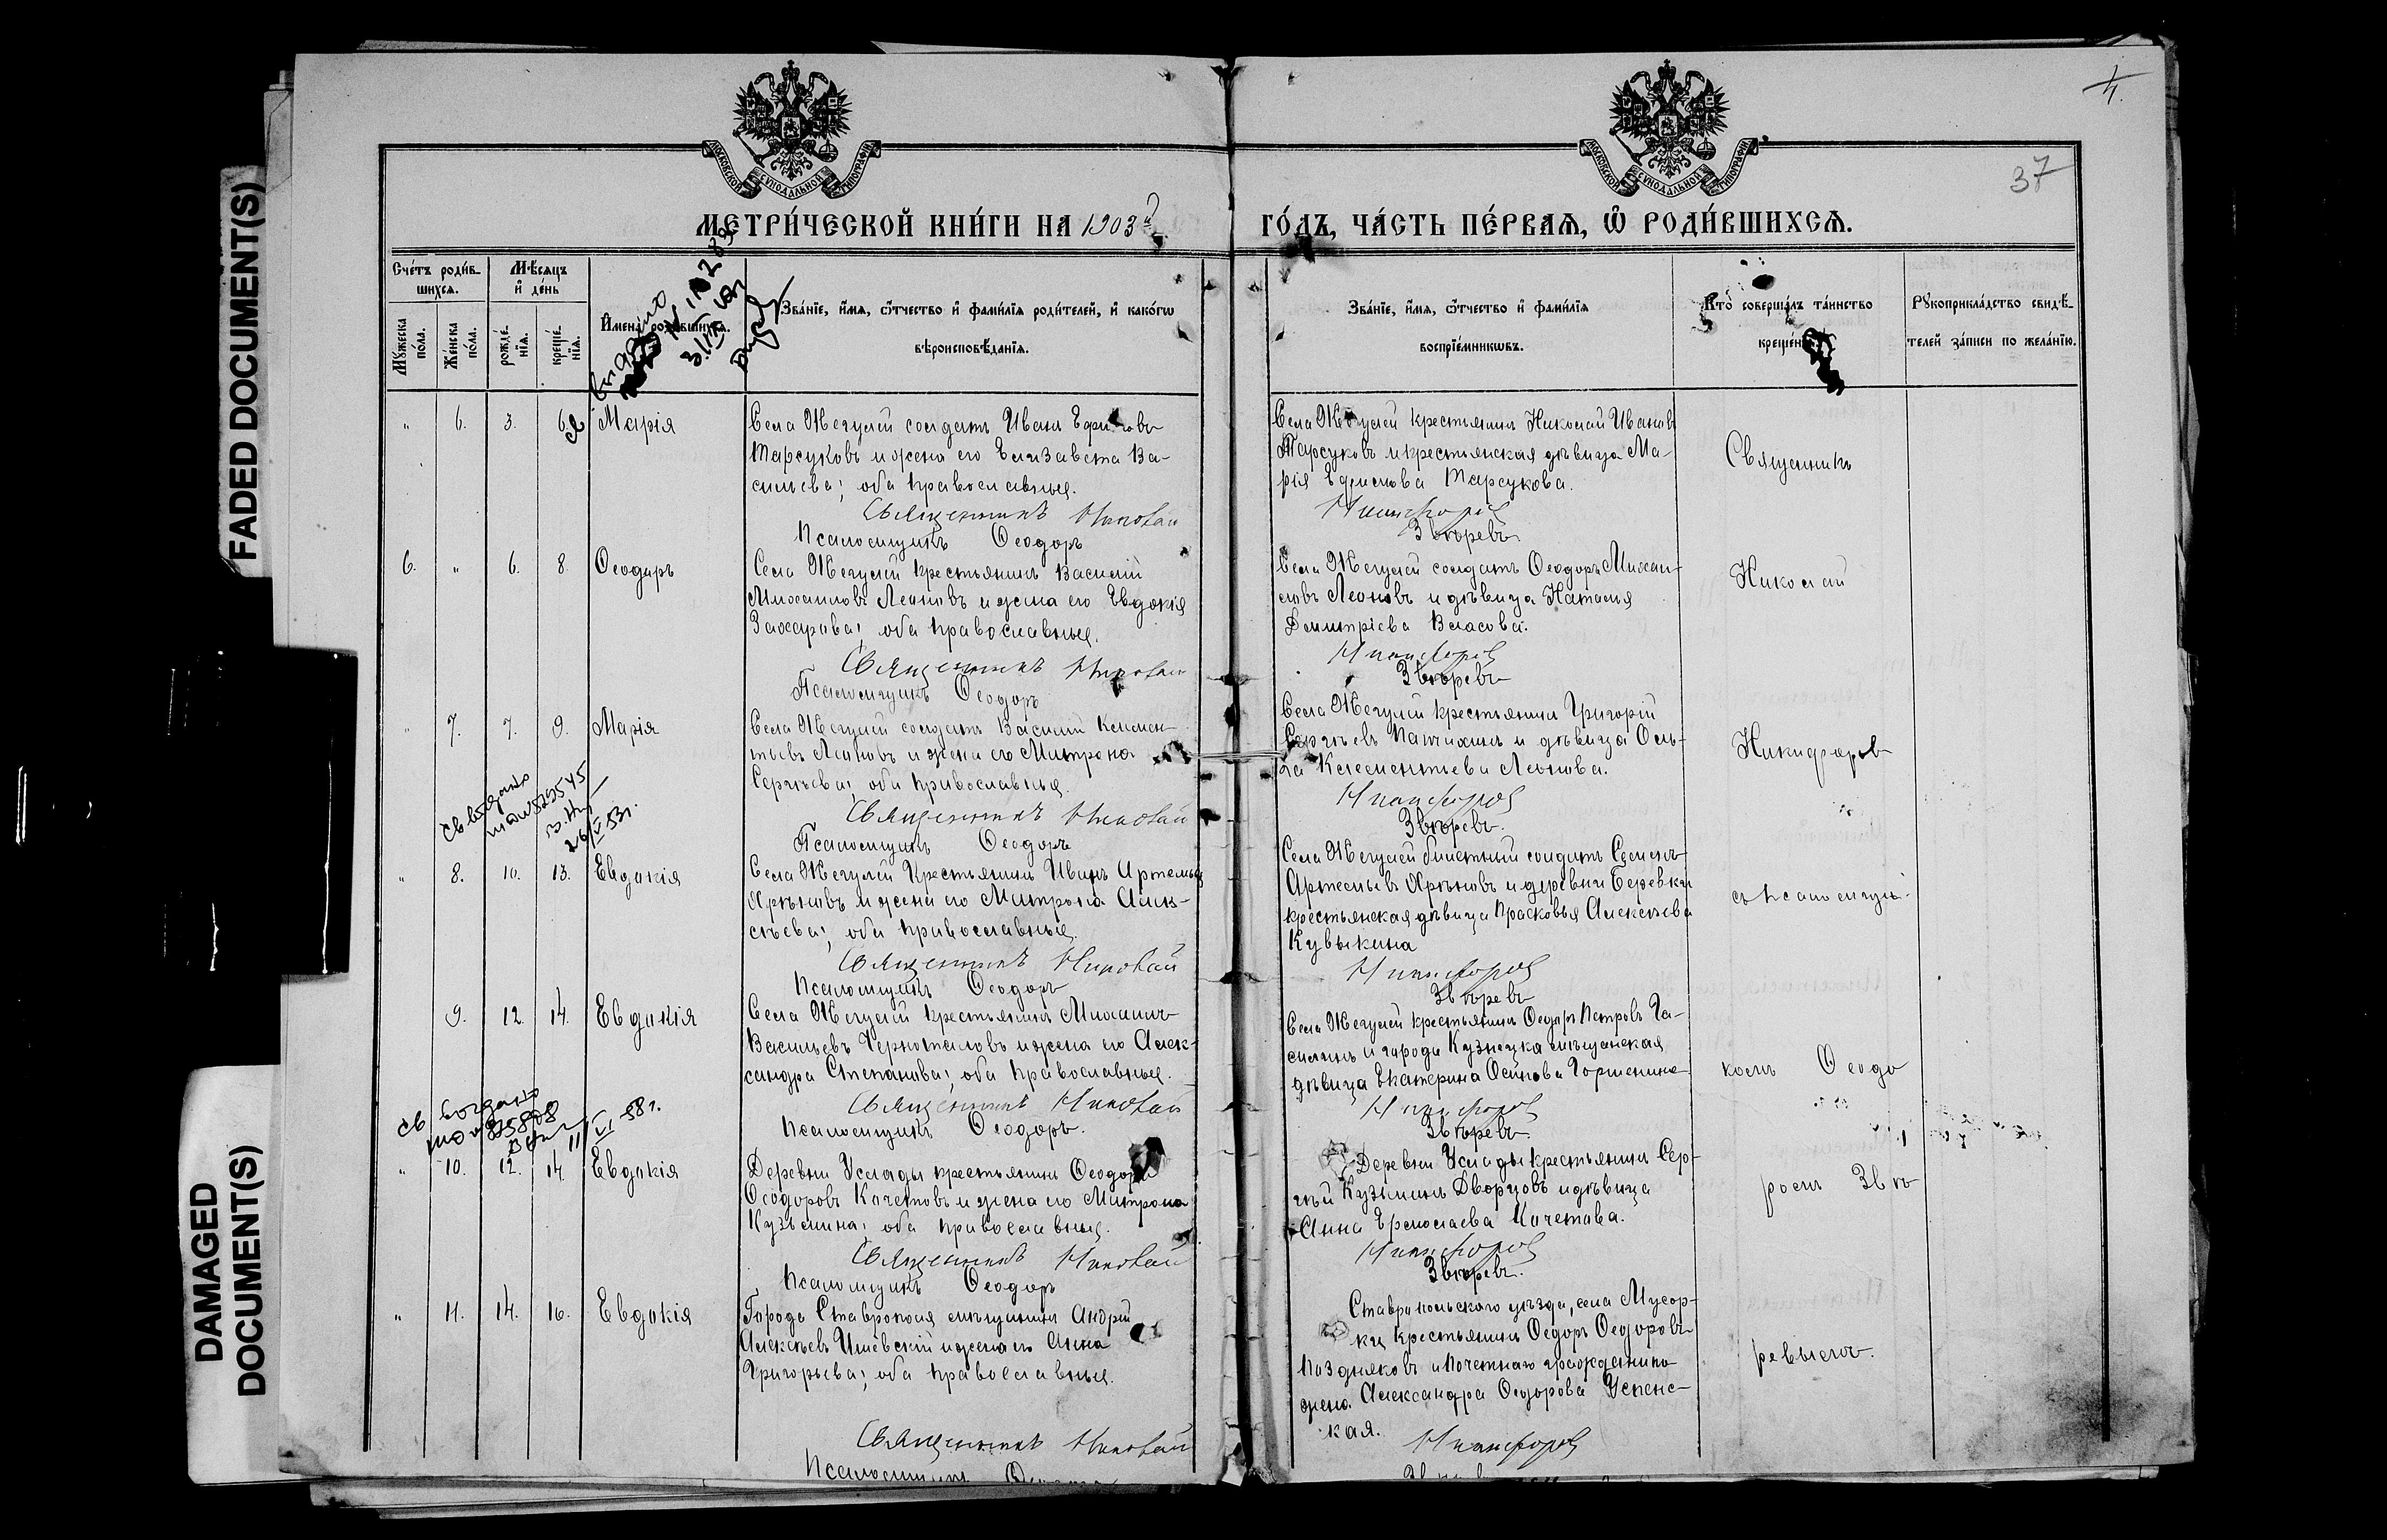 FADED DOCUMENT(S)
DAMAGED
DOCUMENT(S)
МОСКОВСКОЙ СѴНОДАЛЬНОЙ ТИПОГРАФІИ
МОСКОВСКОЙ СѴНОДАЛЬНОЙ ТИПОГРАФІИ
4.
37
МЕТРИ́ЧЕСКОЙ КНИ́ГИ НА 1903й
ГО́ДЪ, ЧА́СТЬ ПЕ́РВАѦ, Ѡ҆ РОДИ́ВШИХСѦ.
Сче́тъ роди́в-
шихсѧ.
Мꙋ́жеска
по́ла.
Же́нска
по́ла.
Мѣ́сѧцъ
и҆ де́нь
рожде́-
нїѧ.
креще́-
нїѧ.
И҆мена̀ роди́вшихсѧ.
Зва́нїе, и҆́мѧ, ѻ҆́тчество и҆ фами́лїѧ роди́телей, и҆ како́гѡ
вѣроисповѣ́данїѧ.
Зва́нїе, и҆́мѧ, ѻ҆́тчество и҆ фами́лїѧ
воспрїе́мникѡвъ.
Кто̀ соверша́лъ та́инство
креще́нїѧ.
Рꙋкоприкла́дство свидѣ́-
телей за́писи по жела́нїю.
" 6. 3. 6. Марія
Села Жегулей солдатъ Иванъ Ефимовъ
Тарсуковъ и жена его Елизавета Ва-
сильева; оба православные.
Священникъ Николай
Псаломщикъ Ѳеодоръ
Села Жегулей крестьянинъ Николай Ивановъ
Тарсуковъ и крестьянская дѣвица Ма-
рія Тарсукова.
Никифоровъ
Звѣревъ
Священникъ
6. " 6. 8. Ѳеодоръ
Села Жегулей крестьянинъ Василій
Михайловъ Леоновъ и жена его Евдокія
Захарова; оба православные.
Священникъ Николай
Псаломщикъ Ѳеодоръ
Села Жегулей солдатъ Ѳеодоръ Михаи-
ловъ Леоновъ и дѣвица Наталья
Димитріева Власова.
Никифоровъ
Звѣревъ
Николай
" 7. 7. 9. Марія
Села Жегулей солдатъ Василій Клемен-
тьевъ Леоновъ и жена его Митрона
Сергѣева; оба православные.
Священникъ Николай
Псаломщикъ Ѳеодоръ
Села Жегулей крестьянинъ Григорій
Сергѣевъ и дѣвица Оль-
га Клементьева Леонова.
Никифоровъ
Звѣревъ.
Никифоровъ
" 8. 10. 13. Евдокія
Села Жегулей Крестьянинъ Иванъ Артемьевъ
Хрѣновъ и жена его Митрона Алек-
сѣева; оба православные.
Священникъ Николай
Псаломщикъ Ѳеодоръ
Села Жегулей билетный солдатъ Семенъ
Артемьевъ Хрѣновъ и деревни Березки
крестьянская дѣвица Прасковья Алексѣева
Кувыкина
Никифоровъ
Звѣревъ
съ псаломщи-
9. 12. 14. Евдокія
Села Жегулей крестьянинъ Михаилъ
Васильевъ и жена его Алек-
сандра Степанова; оба православные.
Священникъ Николай
Псаломщикъ Ѳеодоръ.
Села Жегулей крестьянинъ Ѳеодоръ Петровъ Га-
и города Кузнецка мѣщанская
дѣвица Екатерина Осипова Горшенина
Никифоровъ
Звѣревъ
комъ Ѳеодо
" 10. 12. 14. Евдокія
Деревни Услады крестьянинъ Ѳеодоръ
Ѳеодоровъ Кочетовъ и жена его Митрона
Кузьмина; оба православные.
Священникъ Николай
Псаломщикъ Ѳеодоръ
Деревни Услады крестьянинъ Сер-
гѣй Кузьминъ Дворцовъ и дѣвица
Анна Ермолаева Кочетова.
Никифоровъ
Звѣревъ.
ромъ Звѣ
" 11. 14. 16. Евдокія
Города Ставрополя мѣщанинъ Андрей
Алексѣевъ и жена его Анна
Григорьева; оба православные.
Священникъ Николай
Псаломщикъ
Ставропольского уѣзда, села Мусор-
ки крестьянинъ Ѳеодоръ Ѳеодоровъ
Поздняковъ и Почетнаго гражданина
жена Александра Ѳеодорова Успенс-
кая.
Никифоровъ
ревымъ.